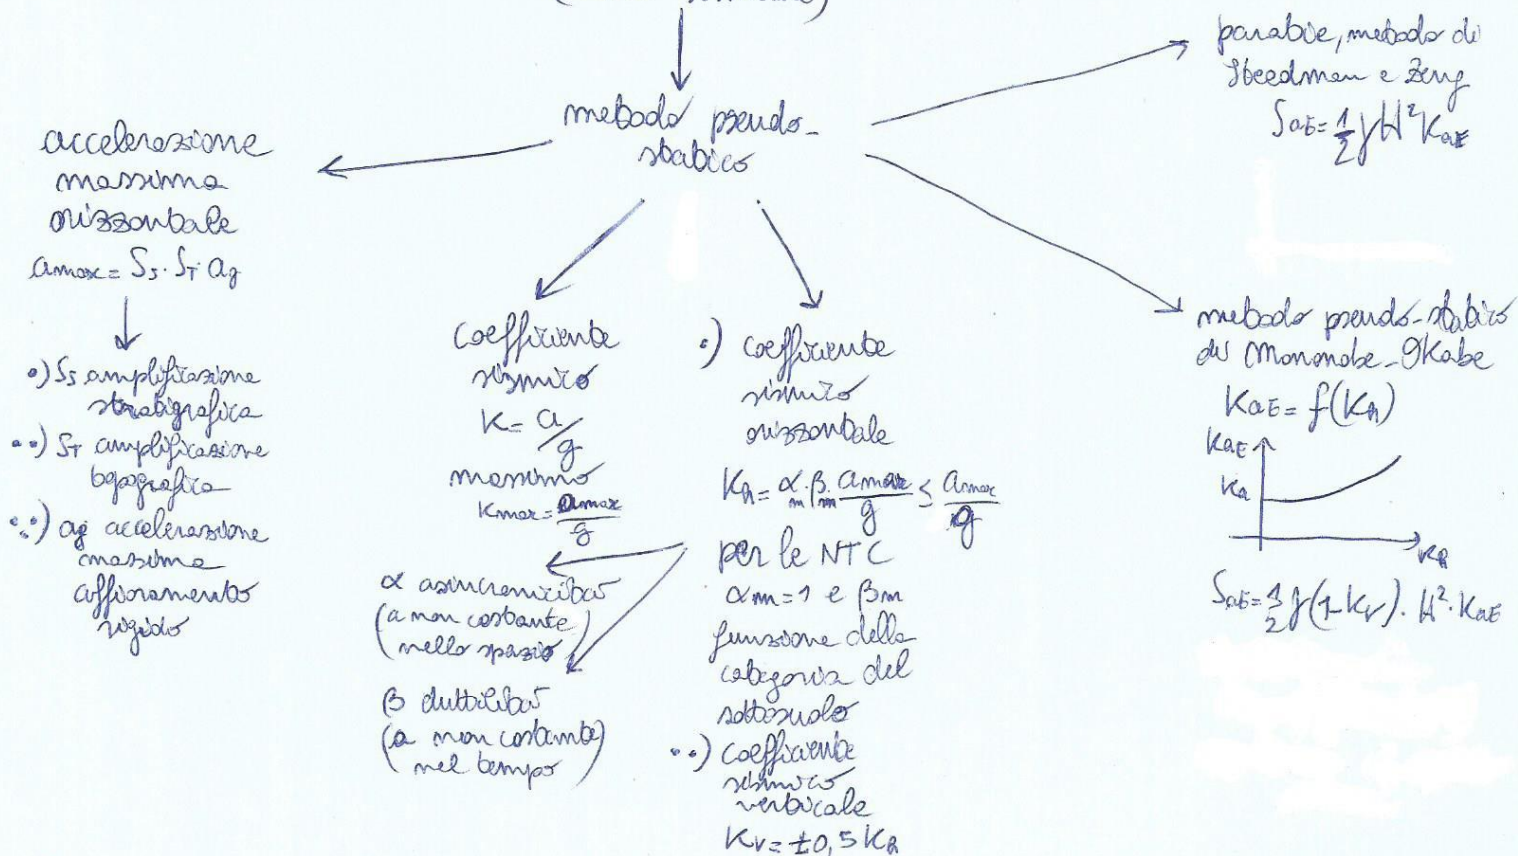 metodo pseudo-
statico
accelerazione
massima
orizzontale
amax = Ss · ST · ag
•) Ss amplificazione
stratigrafica
••) ST amplificazione
topografica
•••) ag accelerazione
massima
affioramento
rigido
coefficiente
sismico
K = a/g
massimo
Kmax = amax/g
α asincronicità
(a non costante
nello spazio)
β duttilità
(a non costante)
nel tempo
•) coefficiente
sismico
orizzontale
Kh = αm · βm · amax/g ≤ amax/g
per le NTC
αm = 1 e βm
funzione della
categoria del
sottosuolo
••) coefficiente
sismico
verticale
Kv = ±0,5 Kh
paratie, metodo di
Steedman e Zeng
SaE = 1/2 γ H² KaE
metodo pseudo-statico
di Mononobe-Okabe
KaE = f(Kh)
KaE
Ka
Kh
SaE = 1/2 γ (1-Kv) · H² · KaE